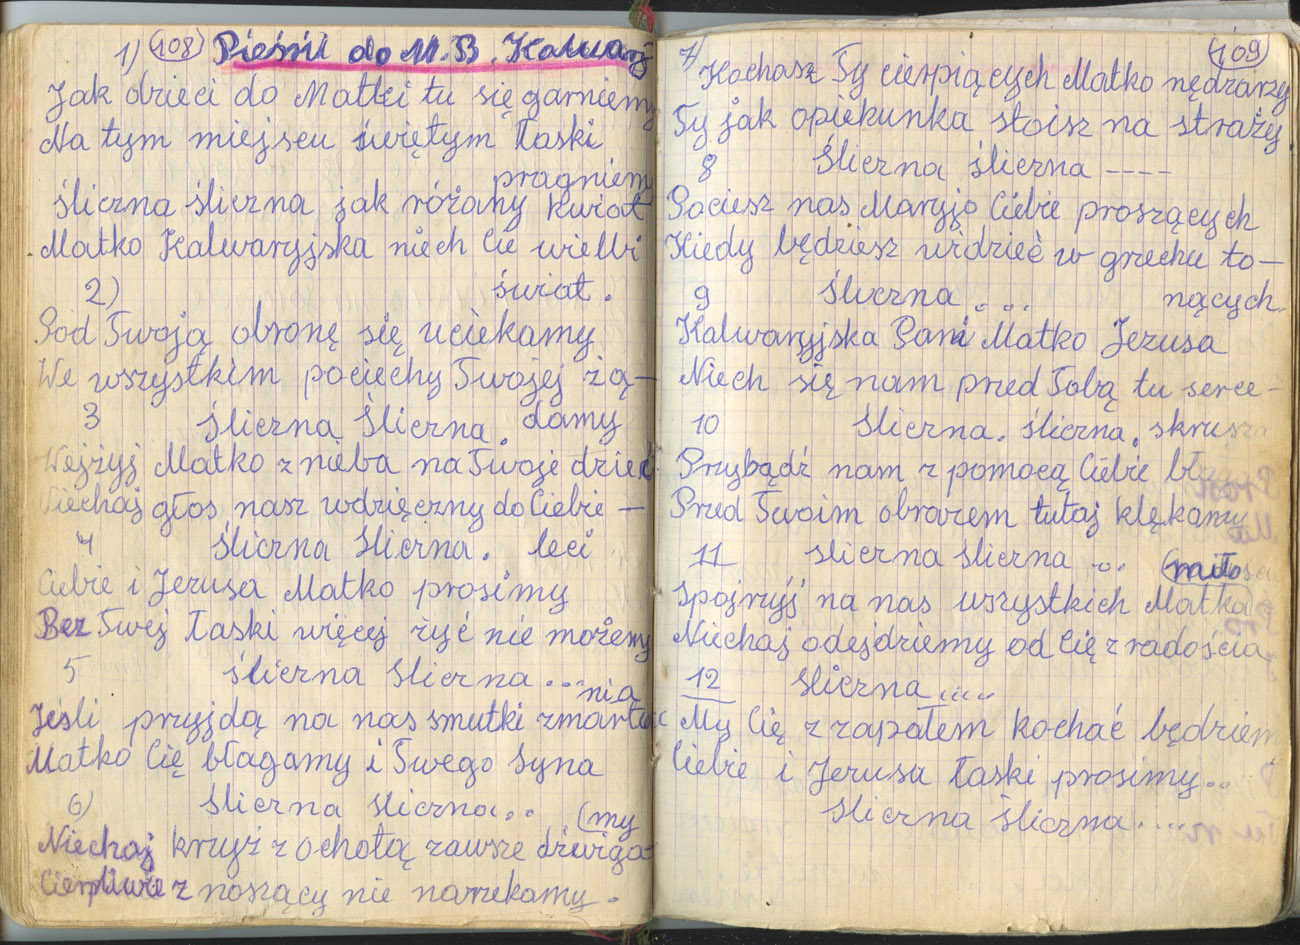 1) (108) Pieśni do M.B. Kalwaryj
Jak dzieci do Matki tu się garniemy
Na tym miejscu świętym Łaski
pragniemy
Śliczna śliczna jak różany kwiat
Matko Kalwaryjska niech Cie wielbi
świat.
2)
Pod Twoją obronę się uciekamy
We wszystkim pociechy Twojej żą-
3 Śliczna Śliczna. damy
Wejżyj Matko z nieba na Twoje dzieci
Niechaj głos nasz wdzięczny do Ciebie -
4 Śliczna Śliczna. leci
Ciebie i Jezusa Matko prosimy
Bez Twej Łaski więcej żyć nie możemy
5 śliczna śliczna ...
nia
Jeśli przyjdą na nas smutki zmartwie
Matko Cię błagamy i Twego Syna
6) śliczna śliczna.. (my
Niechaj krzyż z ochotą zawsze dźwiga
Cierpliwie z noszący nie narzekamy.
7) (109)
Kochasz Ty cierpiących Matko nędzarzy
Ty jak opiekunka stoisz na straży.
8 Śliczna śliczna ----
Pociesz nas Maryjo Ciebie proszących
Kiedy będziesz widzieć w grzechu to-
9 Śliczna.... nących.
Kalwaryjska Pani Matko Jezusa
Niech się nam pred Tobą tu serce-
10 Śliczna. śliczna. skrusza
Przybądź nam z pomocą Ciebie
Pred Twoim obrazem tutaj klękamy
11 śliczna śliczna ... (miło
Spojrzyj na nas wszystkich Matka
Niechaj odejdziemy od Cię z radościa
12 śliczna....
My Cię z zapałem kochać będziem
Ciebie i Jezusa łaski prosimy..
śliczna śliczna....